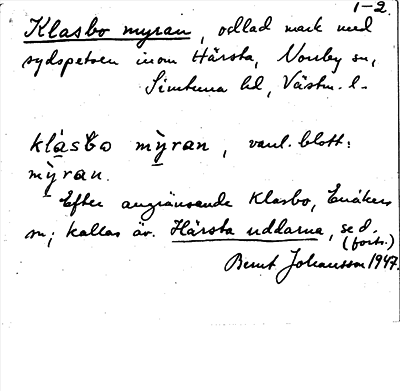 1-2.
Klasbo myran, odlad mark med
sydspetsen inom Härsta, Norrby sn,
Simtuna hd, Västm. l.
klásbo mỳran, vanl. blott:
mỳran.
Efter angränsande Klasbo, Enåkers
sn; kallas äv. Härsta uddarna, se d.
(forts.)
Bernt Johansson 1947.